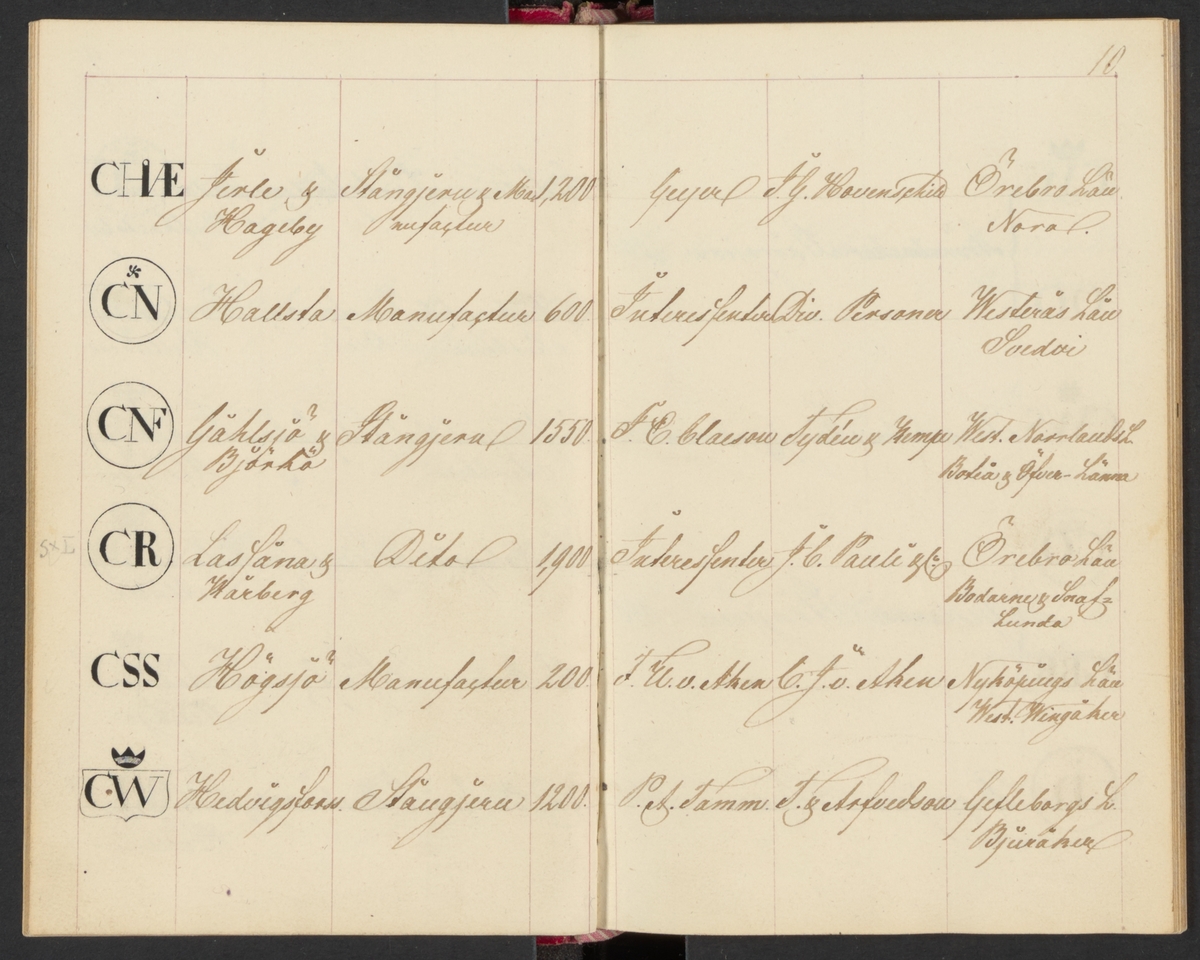 10.
CHÆ Jerle & Stångjern & Ma= 1,200 Geyer J. G. Hovenschild Örebro Län
Hageby nufactur Nora.
CN Hallsta Manufactur 600. Interessenter Div. Personer Westerås Län
Svedvi
CNF Gåhlsjö & Stångjern 1550. F. E. Claeson Tydén & Kempe West. Norrlands L.
Björkå Boteå & Öfver-Länna
CR Lassåna & Dito 1,900 Interessenter J. C. Pauli & Co Örebro Län
Wårberg Bodarne & Snaf=
lunda
CSS Högsjö Manufactur 200. F. U. v. Aken C. J. v. Aken Nyköpings Län
West. Wingåker
CW Hedvigsfors. Stångjern 1200. P. A. Tamm. T. & Arfvedson Gefleborgs L.
Bjuråker